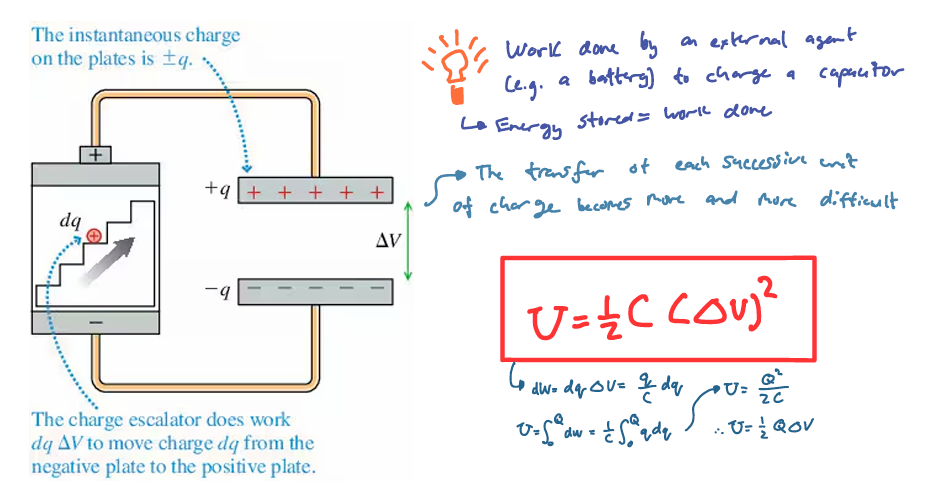 The instantaneous charge
on the plates is ±q.
+
+q
+ + + + +
dq
+
ΔV
−q
− − − − −
−
The charge escalator does work
dq ΔV to move charge dq from the
negative plate to the positive plate.
Work done by an external agent
(e.g. a battery) to charge a capacitor
↳ Energy stored = work done
→ The transfer of each successive unit
of charge becomes more and more difficult
U = ½ C (ΔV)²
↳ dw = dq ΔV = q/C dq
U = ∫₀^Q dw = 1/C ∫₀^Q q dq
→ U = Q²/2C
∴ U = ½ Q ΔV